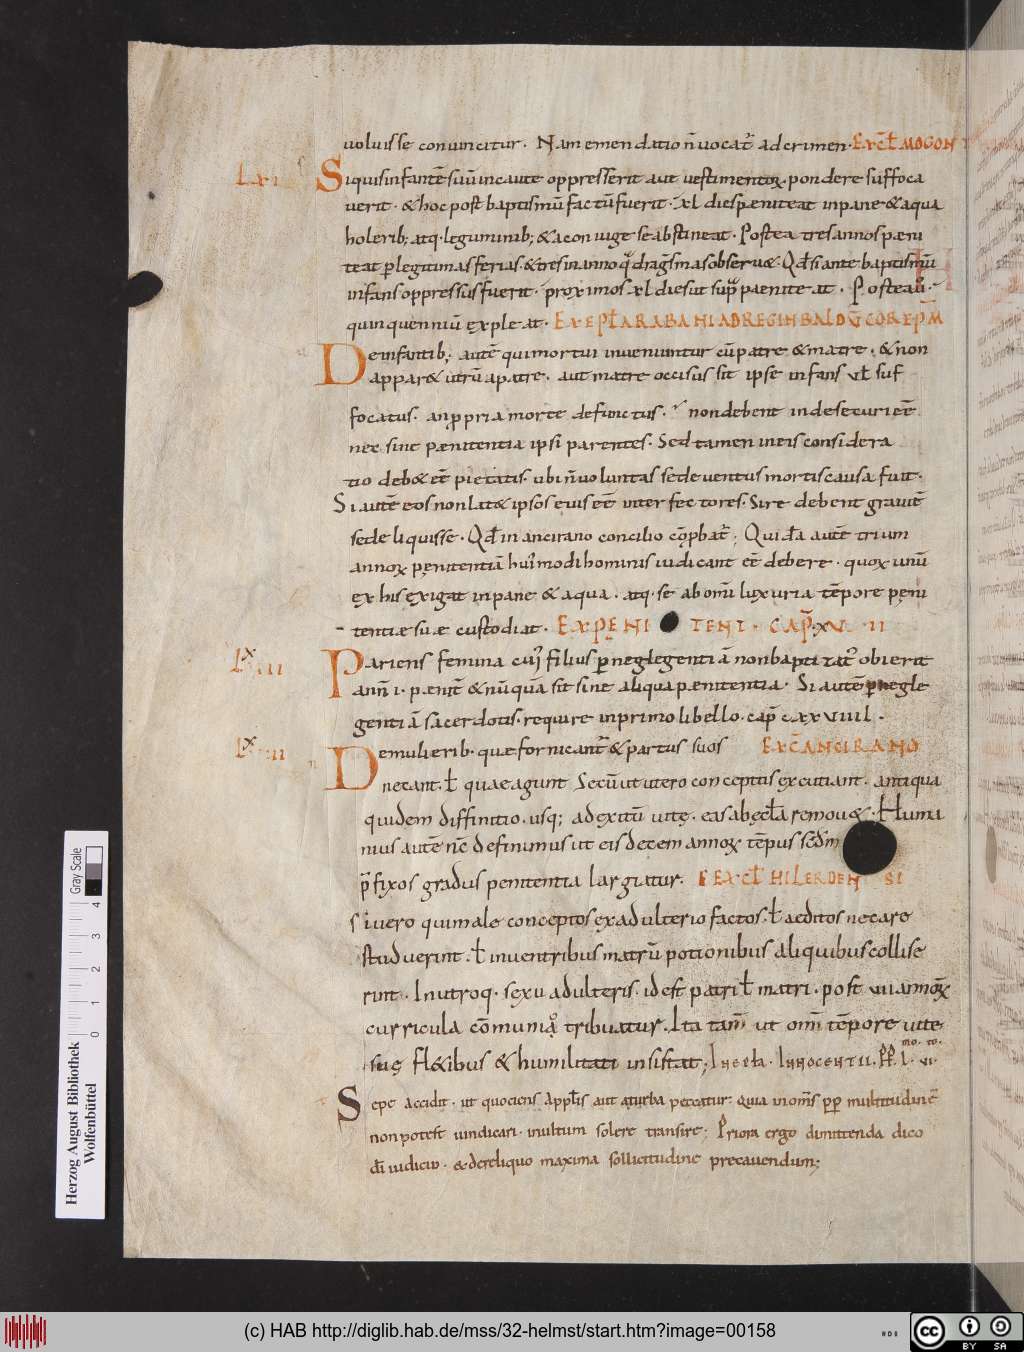 uoluisse conuincitur. Nam emendatio n̄ uocat̄ ad crimen. EX CŁ MOGON
LXI Siquis infantē suū incaute oppresserit aut uestimentoꝝ pondere suffoca
uerit. & hoc post baptismū factū fuerit. xl dies pęniteat in pane & aqua
holerib; atq· leguminib; & a coniuge se abstineat. Postea tres annos pæni
teat ꝑ legitimas ferias. & tres in anno qͣdrag̅ſmas obseru&. Qđ si ante baptismū
infans oppressus fuerit. proximos xl dies ut supͣ paeniteat. Postea ū
quinquenniū expleat. EX EPŁA RABANI AD REGINBALDŪ COREPM̄
De infantib; autē qui mortui inueniuntur cū patre & matre. & non
appar& utrū a patre. aut matre occisus sit ipse infans uł suf
focatus. an ꝓpria morte defunctus. non debent inde securi eē
nec sine pænitentia ipsi parentes. Sed tamen in eis considera
tio deb& eē pietatis. ubi n̄ uoluntas sed euentus mortis causa fuit.
Si autē eos non lat& ipsos eius eē interfectores. Scire debent grauit̄
se deliquisse. Qđ in ancirano concilio cōprobat̄; Qui đa autē trium
annoꝝ pęnitentiā hui'modi hominis iudicant eē debere. quoꝝ unū
ex his exigat in pane & aqua. atq· se ab omī luxuria tēpore pęni
tentiæ suæ custodiat. EX PĘNI TENT. CAP̄. XVII
LXIII Pariens femina cui' filius ꝑ neglegentiā non baptizat' obierit
ann̄ i. pænit̄ & nūquā sit sine aliqua pænitentia. Si autē ꝑ negle
gentiā sacerdotis. require in primo libello. cap̄ cxxviiii.
De mulierib. quæ fornicant̄ & partus suos EX C̄ ANCIRANO
necant. ł quae agunt Secū ut utero conceptus excutiant. antiqua
quidem diffinitio. usq; ad exitū uitę. eas ab ęcła remou&. Huma
nius autē nc̄ definimus ut eis decem annoꝝ tēpus scđm
p̄fixos gradus penitentia largiatur. EX CŁ HILERDEN SI
Si uero qui male conceptos ex adulterio factos. ł aeditos necare
studuerint. ł in uentribus matrū potionibus aliquibus collise
rint. In utroq. sexu adulteris. id est patri ł matri. post vii annoꝝ
curricula cōmunio tribuatur. Ita tam̄ ut om̄i tēpore uite
suę fl&ibus & humilitati insistat; In epła. INNOCENTII. PP. I. VI.
Sepe accidit. ut quociens a ppłis aut a turba peccatur. quia in om̄s ꝓpt̄ multitudinē
non potest uindicari. inultum solere transire; Priora ergo dimittenda dico
di iudicio. & de reliquo maxima sollicitudine precauendum;
Gray Scale
0 1 2 3 4
Herzog August Bibliothek
Wolfenbüttel
(c) HAB http://diglib.hab.de/mss/32-helmst/start.htm?image=00158
cc BY SA